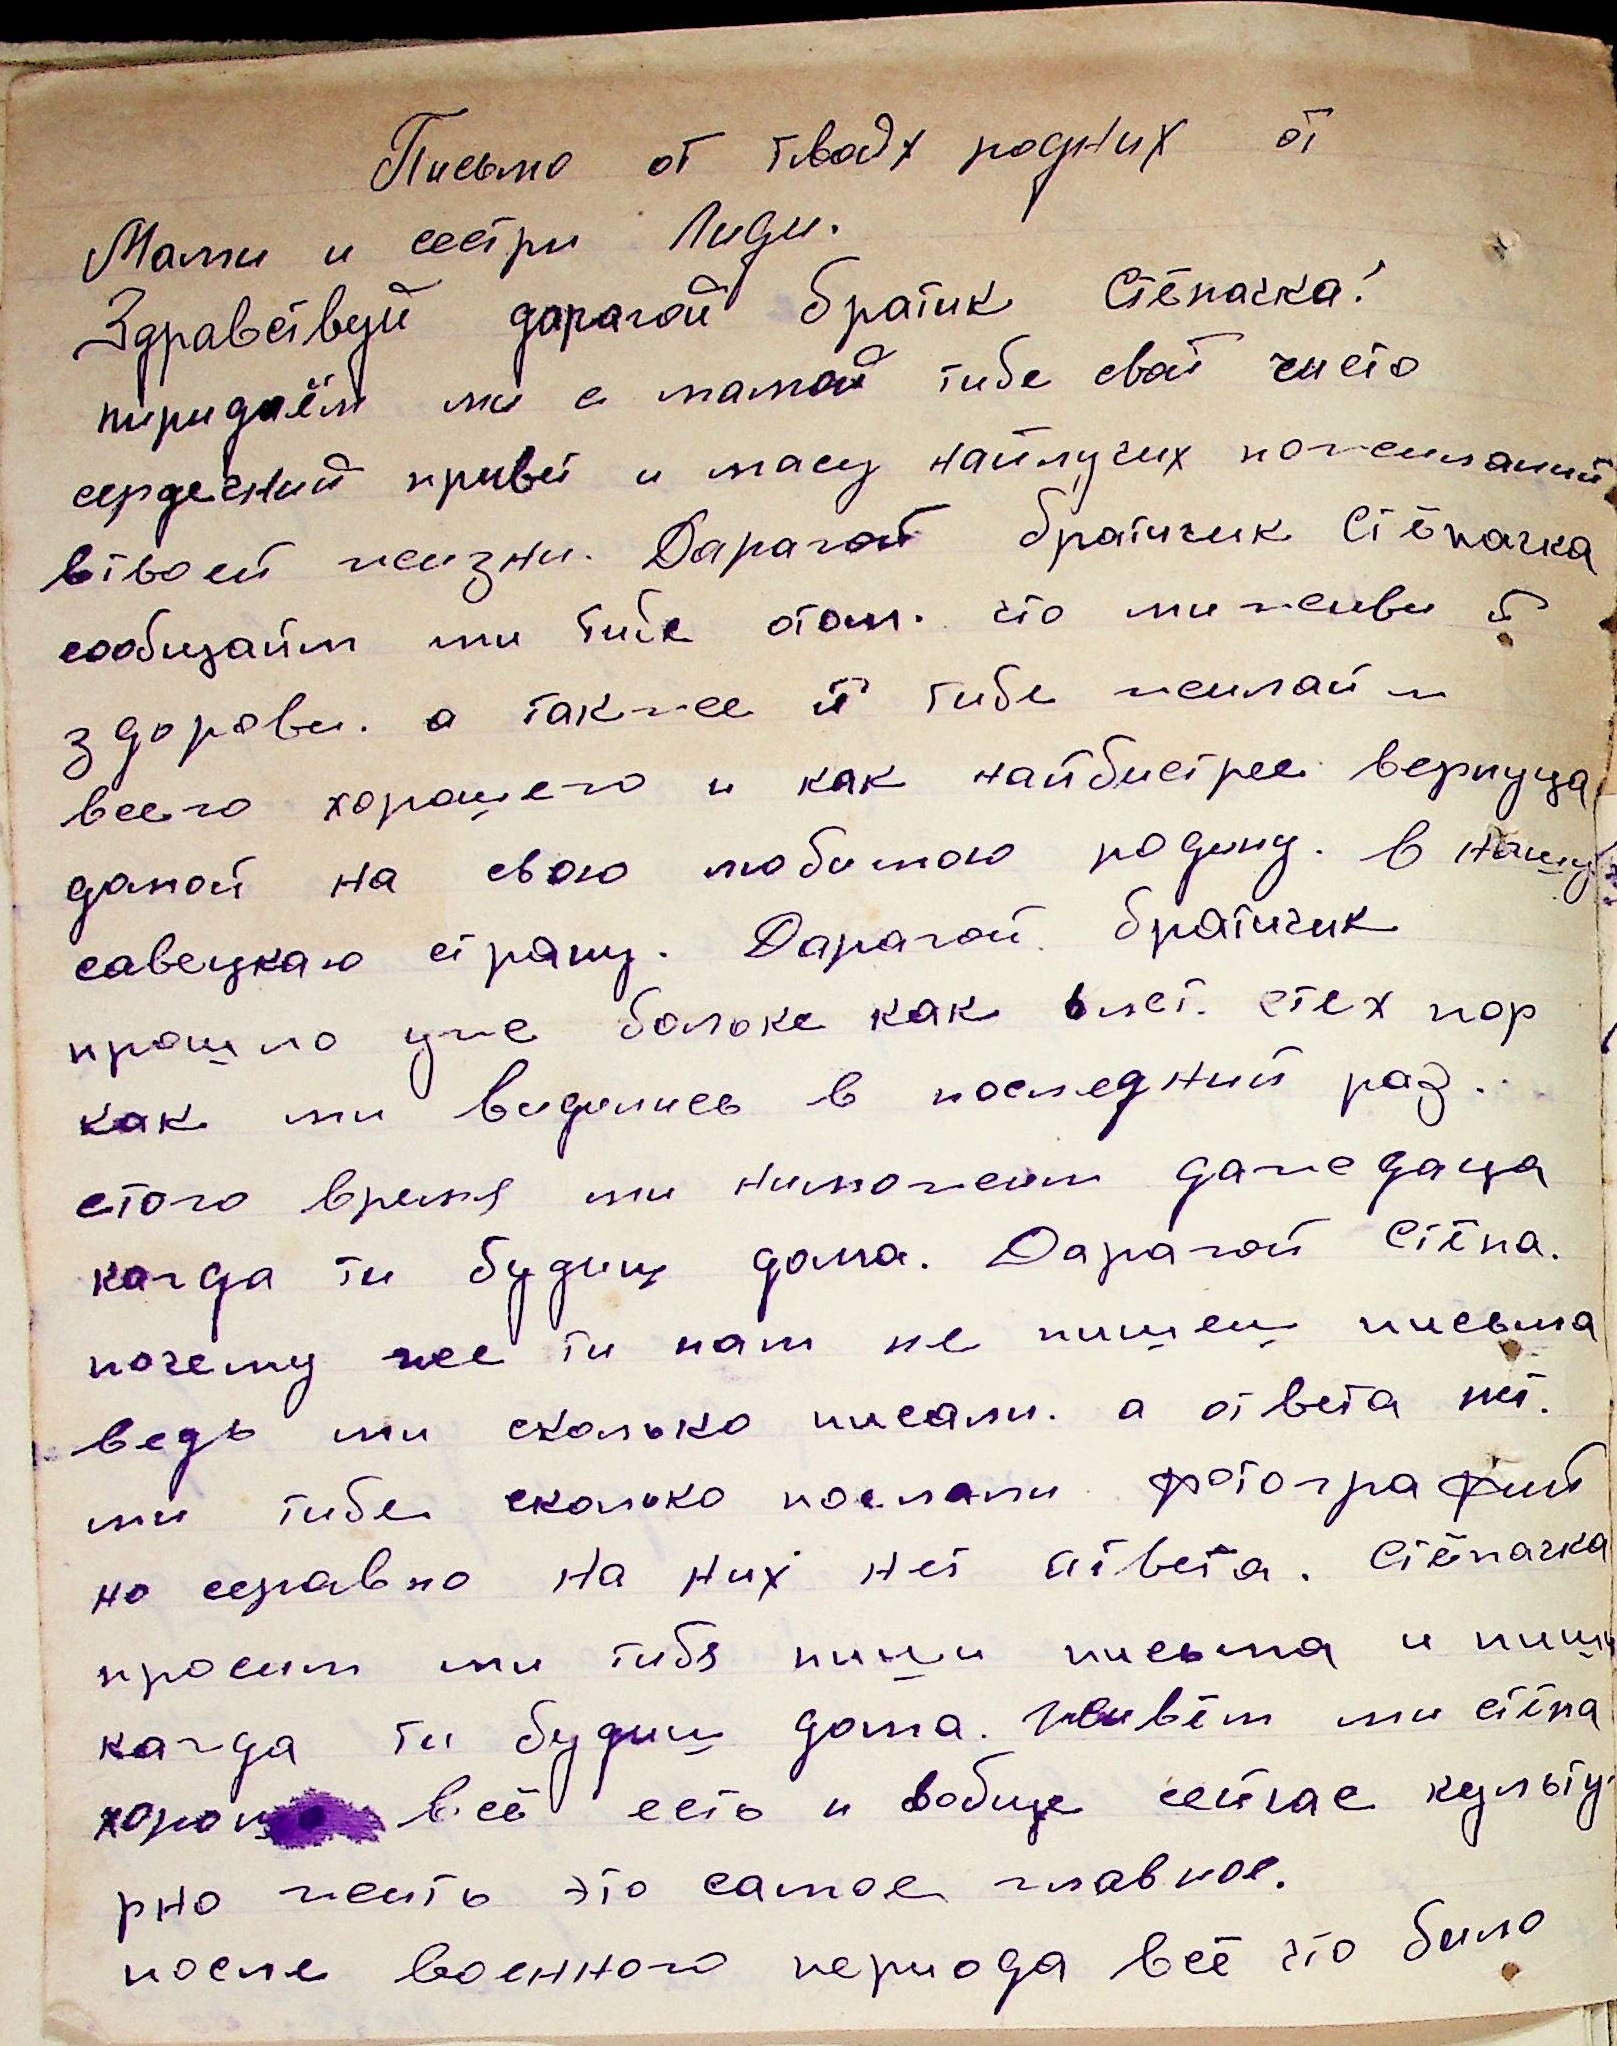 Письмо от твоӣх родних от
Мами и сестри Лиди.
Здравствуй дарагой братик Стёпачка!
пиридаём ми с мамой тибе свой чисто
сердечний привет и масу найлучих пожеланий
втвоей жизни. Дарагой братичик Стёпачка
сообщайм ми тибе отом. что ми живи й
здорови. а также й тибе жилайм
всего хорошего и как найбистрее вернуца
дамой на свою любимою родину. в нашу
савецкаю страну. Дарагой братичик
прошло уже больже как влет. стех пор
как ми видились в последний раз.
стого время ми неможем дажедаца
кагда ти будиш дома. Дарагой Стёпа.
почему же ти нам не пишеш письма
ведь ми сколько писали. а ответа нет.
ми тибе сколько послали фотографий
но серавно на них нет ответа. Стёпачка
просим ми тибя пиши письма и пиши
кагда ти будиш дома. живём ми стёпа
хорошо всё есть и вобще сейчас культу-
рно жить это самое главное.
после военного периода всё что било